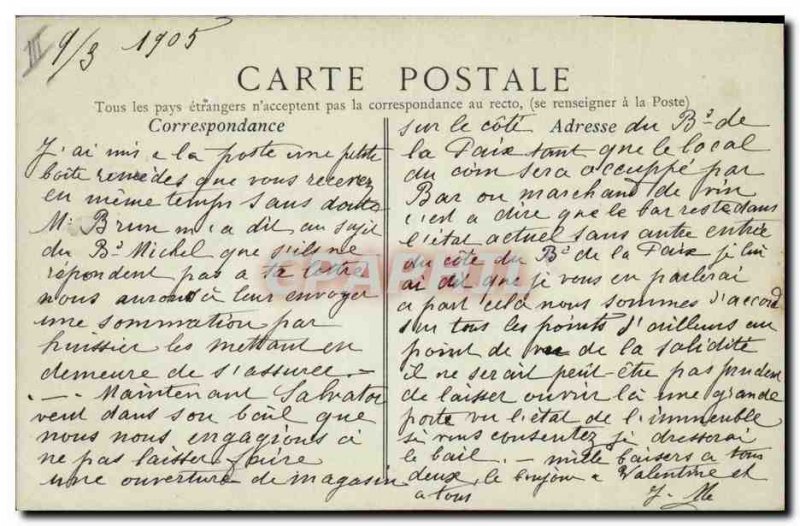 III 9/3 1905
CARTE POSTALE
Tous les pays étrangers n'acceptent pas la correspondance au recto, (se renseigner à la Poste)
Correspondance
J'ai mis a la poste une petite
boite remedes que vous recevrez
en même temps sans doute
Mr Brun m'a dit au sujet
du Bd Michel que s'ils ne
répondent pas a ta lettre
nous aurons à leur envoyer
une sommation par
huissier les mettant en
demeure de s'assurer. —
— Maintenant Salvator
veut dans son bail que
nous nous engagions a
ne pas laisser faire
une ouverture de magasin
Adresse
sur le côté du Bd de
la Paix tant que le local
du coin sera accuppé par
Bar ou marchand de vin
c'est a dire que le bar reste dans
l'état actuel sans autre entrée
du côté du Bd de la Paix je lui
ai dit que je vous en parlerai
a part cela nous sommes d'accord
sur tous les points d'ailleurs au
point de vue de la solidité
il ne serait peut-être pas prudent
de laisser ouvrir là une grande
porte vu l'état de l'immeuble
si vous consentez je dresserai
le bail. — mille baisers a tous
deux, le bonjour a Valentine et
a tous
CPAPHIL